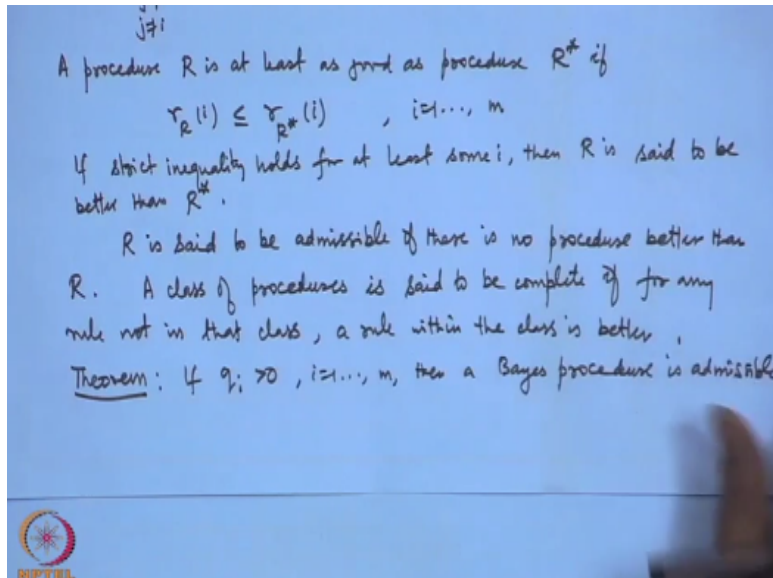 j≠i
A procedure R is at least as good as procedure R* if
r_R(i) ≤ r_R*(i) , i=1..., m
If strict inequality holds for at least some i, then R is said to be
better than R*.
R is said to be admissible if there is no procedure better than
R. A class of procedures is said to be complete if for any
rule not in that class, a rule within the class is better.
Theorem: If q_i >0, i=1..., m, then a Bayes procedure is admissible
NPTEL